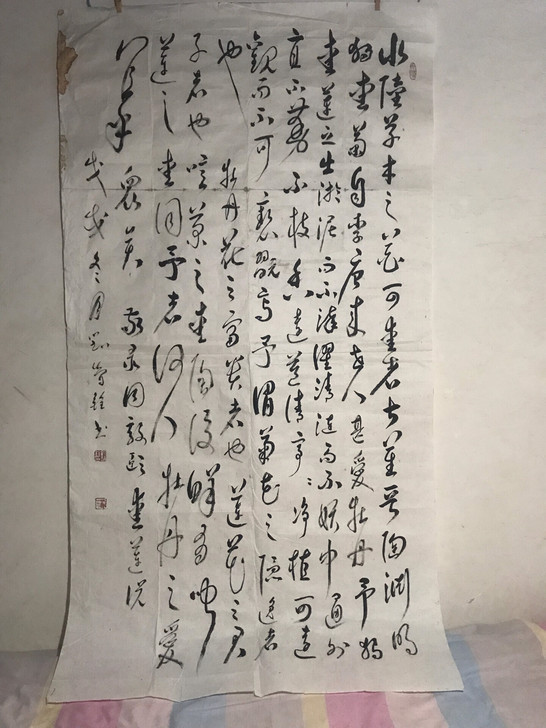 水陸草木之花可愛者甚蕃晉陶淵明
獨愛菊自李唐來世人甚愛牡丹予獨
愛蓮之出淤泥而不染濯清漣而不妖中通外
直不蔓不枝香遠益清亭〻淨植可遠
觀而不可褻翫焉予謂菊花之隱逸者
也牡丹花之富貴者也蓮花之君
子者也噫菊之愛陶後鮮有聞
蓮之愛同予者何人牡丹之愛
宜乎眾矣敬录周敦颐愛蓮说
戊戌冬月劉书